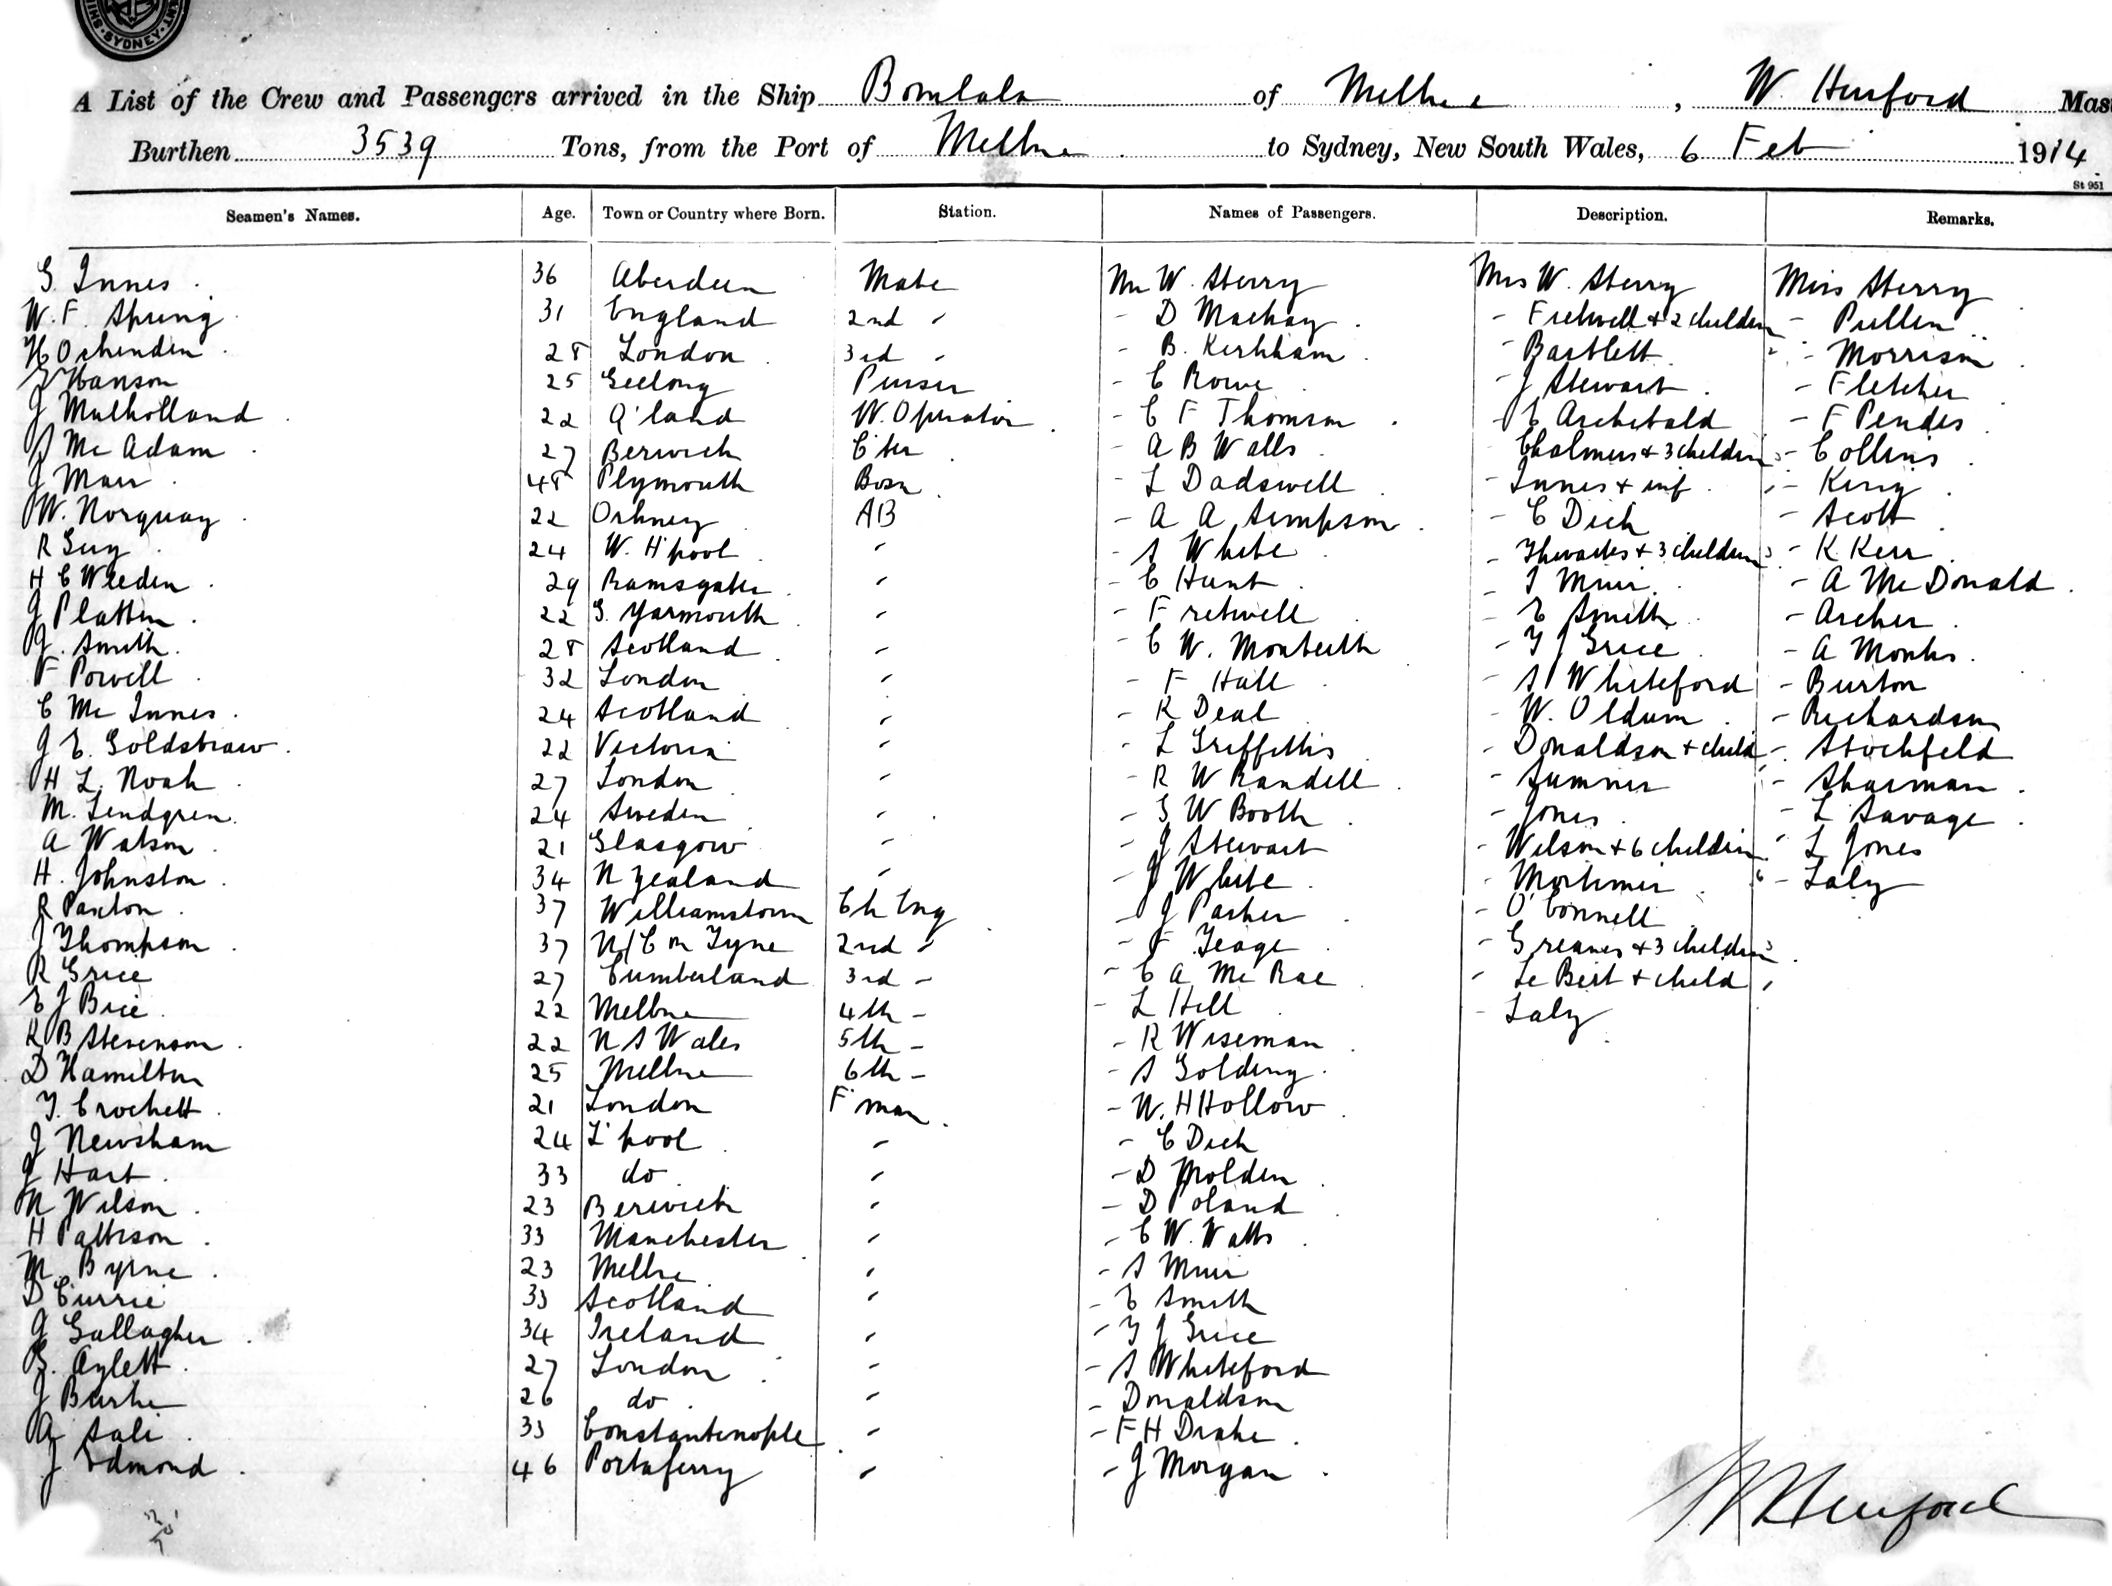 SYDNEY
A List of the Crew and Passengers arrived in the Ship Bombala of Melbne, W. Hurford Mas
Burthen 3539 Tons, from the Port of Melbne to Sydney, New South Wales, 6 Feb 1914
St 951
Seamen's Names. Age. Town or Country where Born. Station. Names of Passengers. Description. Remarks.
G. Innes. 36 Aberdeen Mate Mr W. Sterry Mrs W. Sterry Miss Sterry
W. F. Spring 31 England 2nd " - D Mackay - Fretwell + 2 children - Pullen
H Ockenden 28 London 3rd " - B. Kirkham - Bartlett " - Morrison
Hanson 25 Geelong Purser - C Rowe - J Stewart - Fletcher
J Mulholland 22 Q'land W. Operator - C F Thomson - E Archibald - F Pendes
S Mc Adam 27 Berwick C'ter - A B Walls - Chalmers + 3 children - Collins
J Marr 48 Plymouth Bosn - L Dadswell - Innes + inf - King
W. Norquay 22 Orkney AB - A A Simpson - C Dick - Scott
R Guy 24 W. H'pool " - S White - Thwaites + 3 children - K Kerr
H C Weeden 29 Ramsgate " - C Hunt - S Muir - A McDonald
J Platten 22 G. Yarmouth " - Fretwell - E Smith - Archer
J. Smith 28 Scotland " - C W. Monteith - T J Grice - A Monks.
F Powell 32 London " - F Hall - S Whiteford - Burton
C Mc Innes 24 Scotland " - R Deal - W. Oldum - Richardson
J E. Goldstraw 22 Victoria " - L Griffiths - Donaldson + child - Stochfeld
H L. Noah 27 London " - R W Randell - Sumner - Sharman
M. Lindgren 24 Sweden " - G W Booth - Jones - L Savage
A Watson 21 Glasgow " - J Stewart - Wilson + 6 children - L Jones
H. Johnston 34 N Zealand " - J White - Mortimer 6 - Laly
R Paxton 37 Williamstown Ch Eng - J Parker - O'Connell
J Thompson 37 N/C on Tyne 2nd " - F Teage - Greanes + 3 children
R Grice 27 Cumberland 3rd - - C A Mc Rae - Le Bert + child
E J Brie 22 Melbne 4th - - L Hill - Laly
R B Stevenson 22 N S Wales 5th - - R Wiseman
D Hamilton 25 Melbne 6th - - S Golding
T. Crockett 21 London F'man - W. H Hollow
J Newsham 24 L'pool " - C Dick
J Hart 33 do " - D Molden
N Wilson 23 Berwick " - D Poland
H Pattison 33 Manchester " - C W. Watts
M. Byrne 23 Melbne " - S Muir
D Currie 33 Scotland " - E Smith
J Gallagher 34 Ireland " - T J Grice
G. Aylett 27 London " - S Whiteford
J Burke 26 do " - Donaldson
A Sali 33 Constantinople " - F H Drake
J Edmond 46 Portaferry " - J Morgan
W Hurford